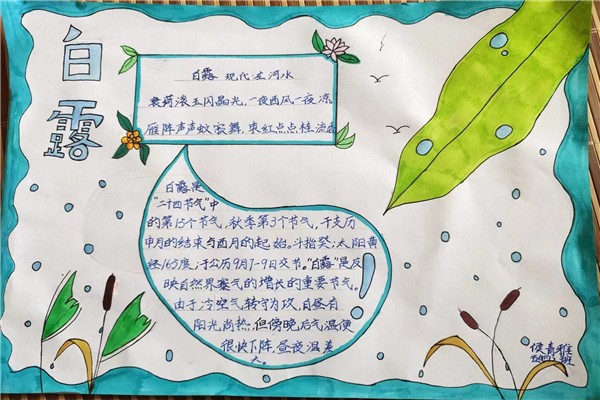 白露
白露 现代 左河水
衰荷滚玉闪晶光,一夜西风一夜凉
雁阵声声蚊寂舞,枣红点点桂流香
白露是
"二十四节气"中
的第15个节气,秋季第3个节气,于支历
申月的结束与酉月的起始。斗指癸;太阳黄
经165度;于公历9月7-9日交节。"白露"是反
映自然界寒气的增长的重要节气。
由于冷空气转守为攻,白昼有
阳光尚热,但傍晚后气温便
很快下降,昼夜温差
大。